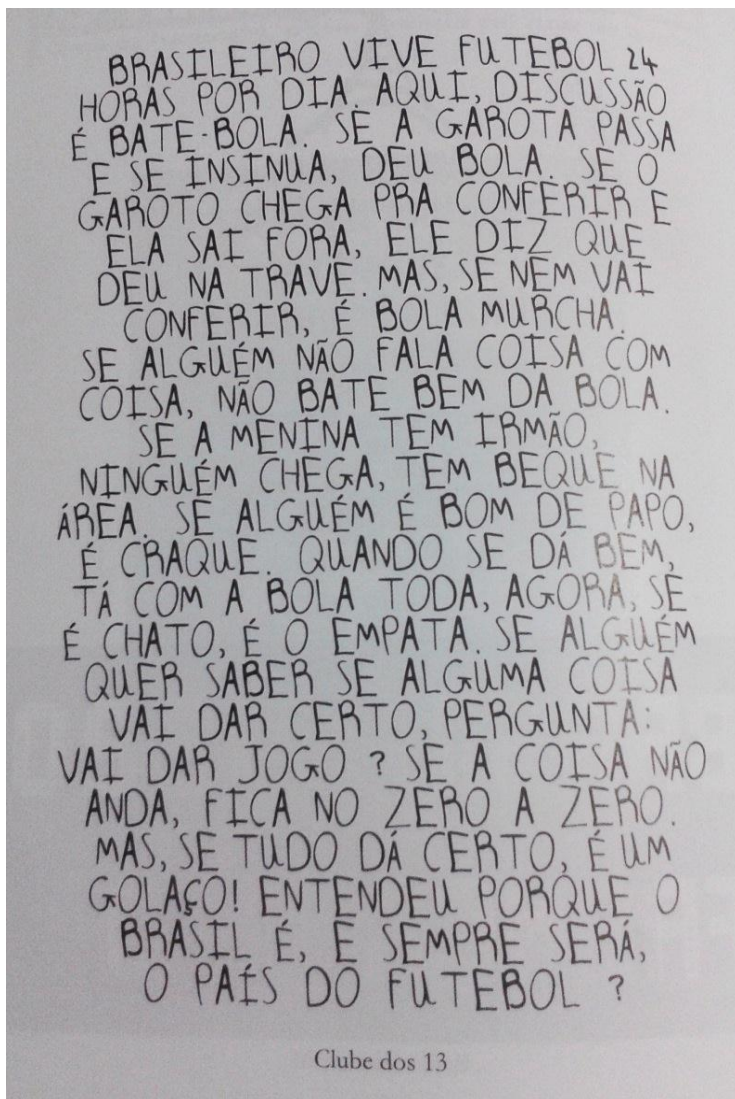 BRASILEIRO VIVE FUTEBOL 24
HORAS POR DIA. AQUI, DISCUSSÃO
É BATE-BOLA. SE A GAROTA PASSA
E SE INSINUA, DEU BOLA. SE O
GAROTO CHEGA PRA CONFERIR E
ELA SAI FORA, ELE DIZ QUE
DEU NA TRAVE. MAS, SE NEM VAI
CONFERIR, É BOLA MURCHA.
SE ALGUÉM NÃO FALA COISA COM
COISA, NÃO BATE BEM DA BOLA.
SE A MENINA TEM IRMÃO,
NINGUÉM CHEGA, TEM BEQUE NA
ÁREA. SE ALGUÉM É BOM DE PAPO,
É CRAQUE. QUANDO SE DÁ BEM,
TÁ COM A BOLA TODA, AGORA, SE
É CHATO, É O EMPATA. SE ALGUÉM
QUER SABER SE ALGUMA COISA
VAI DAR CERTO, PERGUNTA:
VAI DAR JOGO ? SE A COISA NÃO
ANDA, FICA NO ZERO A ZERO.
MAS, SE TUDO DÁ CERTO, É UM
GOLAÇO! ENTENDEU PORQUE O
BRASIL É, E SEMPRE SERÁ,
O PAÍS DO FUTEBOL ?
Clube dos 13